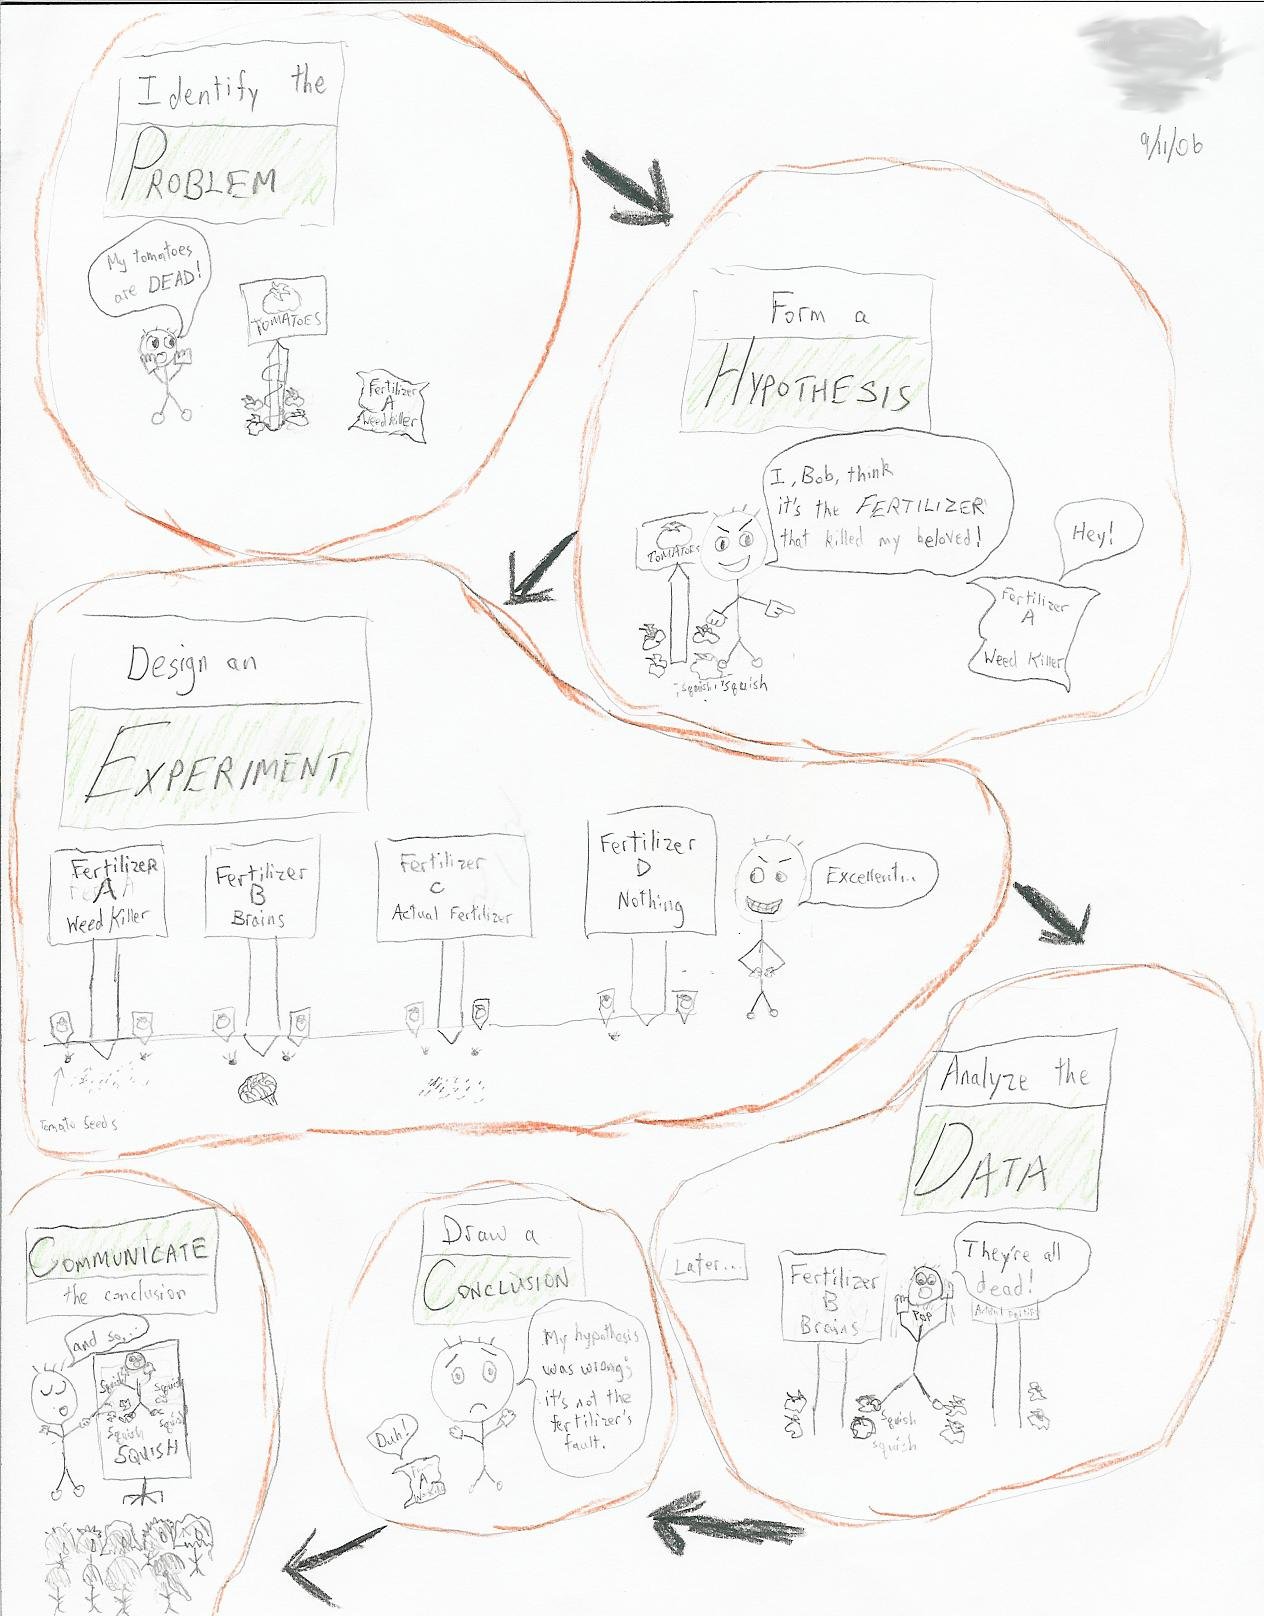 9/11/06
Identify the
PROBLEM
My tomatoes
are DEAD!
TOMATOES
Fertilizer
A
Weed Killer
Form a
HYPOTHESIS
I, Bob, think
it's the FERTILIZER
that killed my beloved!
TOMATOES
Hey!
Fertilizer
A
Weed Killer
squish squish
Design an
EXPERIMENT
Fertilizer
A
Weed Killer
Fertilizer
B
Brains
Fertilizer
C
Actual Fertilizer
Fertilizer
D
Nothing
Excellent...
Tomato Seeds
Analyze the
DATA
Later...
Fertilizer
B
Brains
They're all
dead!
POP
Squish
squish
Draw a
CONCLUSION
My hypothesis
was wrong;
it's not the
fertilizer's
fault.
Duh!
A
COMMUNICATE
the conclusion
and so...
Squish
Squish
Squish
Squish
SQUISH